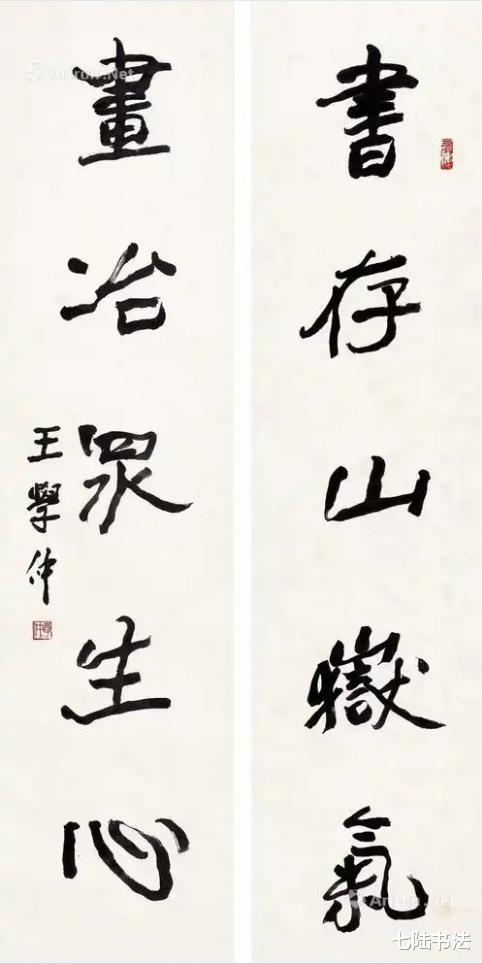 書存山嶽氣
畫冶眾生心
王學仲
Artron.Net
七陆书法